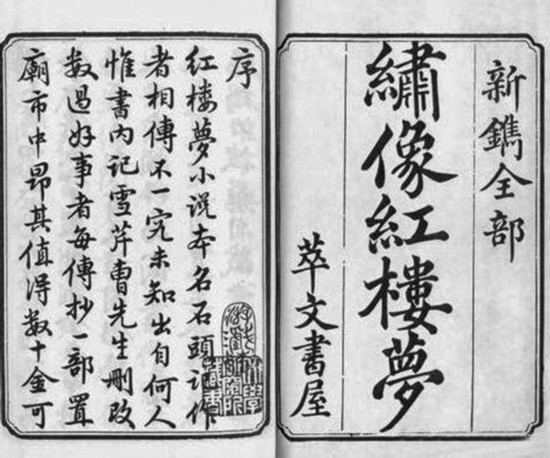 新鐫全部
繡像紅樓夢
萃文書屋
序
紅樓夢小說本名石頭記作
者相傳不一究未知出自何人
惟書內記雪芹曹先生刪改
数過好事者每傳抄一部置
廟市中昂其值得数十金可